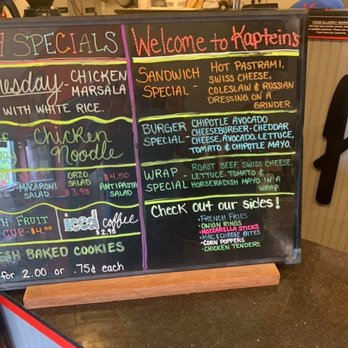 SPECIALS
Tuesday - CHICKEN
MARSALA
WITH WHITE RICE.
Chicken
Noodle
MACARONI
SALAD
ORZO
SALAD
3.95
$4.50
ANTIPASTA
SALAD
FRUIT
CUP - $4.00
iced coffee
$2.95
BAKED COOKIES
for 2.00 or .75¢ each
Welcome to Kaptein's
SANDWICH
SPECIAL -
HOT PASTRAMI,
SWISS CHEESE,
COLESLAW & RUSSIAN
DRESSING ON A
GRINDER.
BURGER
SPECIAL -
CHIPOTLE AVOCADO
CHEESEBURGER - CHEDDAR
CHEESE, AVOCADO, LETTUCE,
TOMATO & CHIPOTLE MAYO.
WRAP -
SPECIAL
ROAST BEEF, SWISS CHEESE,
LETTUCE, TOMATO &
HORSERADISH MAYO IN A
WRAP
Check out our sides!
• FRENCH FRIES
• ONION RINGS
• MOZZARELLA STICKS
• MAC & CHEESE BITES
• CORN POPPERS
• CHICKEN TENDERS
FOOD ALLERGY